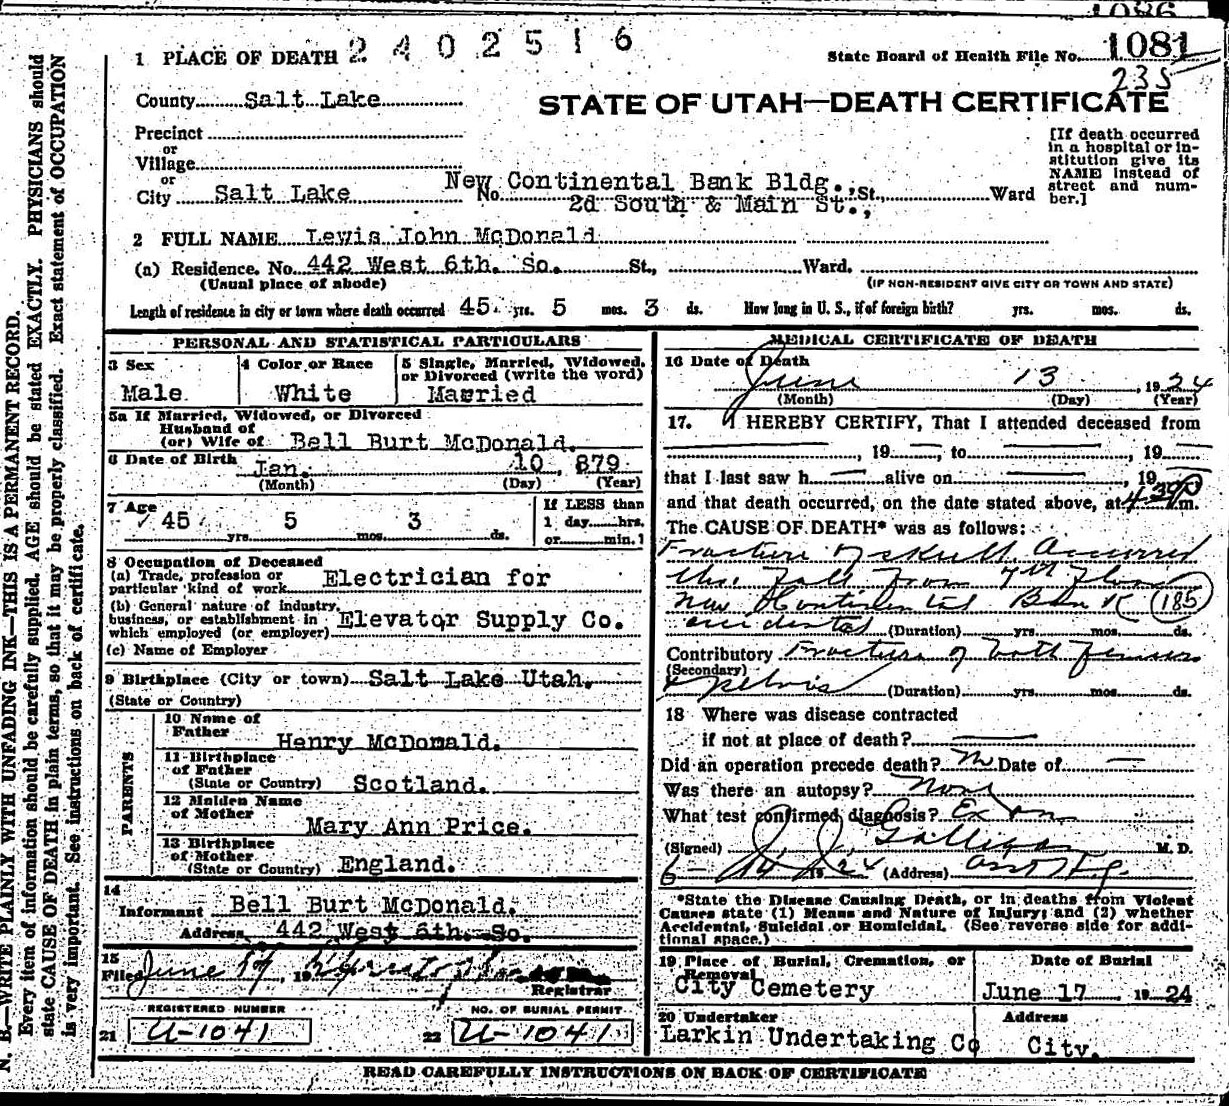 1086
1 PLACE OF DEATH 2402516
State Board of Health File No. 1081
235
County Salt Lake
STATE OF UTAH—DEATH CERTIFICATE
Precinct
or
Village
or
City Salt Lake No. New Continental Bank Bldg., St., Ward
2d South & Main St.,
[If death occurred in a hospital or institution give its NAME instead of street and number.]
2 FULL NAME Lewis John McDonald
(a) Residence. No. 442 West 6th. So. St., Ward.
(Usual place of abode) (IF NON-RESIDENT GIVE CITY OR TOWN AND STATE)
Length of residence in city or town where death occurred 45 yrs. 5 mos. 3 ds. How long in U. S., if of foreign birth? yrs. mos. ds.
PERSONAL AND STATISTICAL PARTICULARS
3 Sex
Male
4 Color or Race
White
5 Single, Married, Widowed, or Divorced (write the word)
Married
5a If Married, Widowed, or Divorced
Husband of
(or) Wife of Bell Burt McDonald.
6 Date of Birth Jan. 10, 879
(Month) (Day) (Year)
7 Age
45 yrs. 5 mos. 3 ds.
If LESS than
1 day hrs.
or min.
8 Occupation of Deceased
(a) Trade, profession or particular kind of work Electrician for
(b) General nature of industry, business, or establishment in which employed (or employer) Elevator Supply Co.
(c) Name of Employer
9 Birthplace (City or town) Salt Lake Utah.
(State or Country)
PARENTS
10 Name of Father
Henry McDonald.
11 Birthplace of Father
(State or Country) Scotland.
12 Maiden Name of Mother
Mary Ann Price.
13 Birthplace of Mother
(State or Country) England.
14
Informant Bell Burt McDonald.
Address 442 West 6th. So.
15
Filed June 19
Registrar
REGISTERED NUMBER
21 U-1041
NO. OF BURIAL PERMIT
22 U-1041
MEDICAL CERTIFICATE OF DEATH
16 Date of Death
June 13, 1924
(Month) (Day) (Year)
17. I HEREBY CERTIFY, That I attended deceased from
, 19 , to , 19
that I last saw h alive on , 19
and that death occurred, on the date stated above, at 4:30 P m.
The CAUSE OF DEATH* was as follows:
Fracture of skull Occurred
thr. Fall from 7th Floor
New Continental Bank 185
accidental (Duration) yrs. mos. ds.
Contributory Fracture of both femurs
(Secondary)
& pelvis (Duration) yrs. mos. ds.
18 Where was disease contracted
if not at place of death?
Did an operation precede death? No Date of
Was there an autopsy? None
What test confirmed diagnosis?
(Signed) J. J. Galligan M. D.
6-14 1924 (Address)
*State the Disease Causing Death, or in deaths from Violent Causes state (1) Means and Nature of Injury; and (2) whether Accidental, Suicidal or Homicidal. (See reverse side for additional space.)
19 Place of Burial, Cremation, or Removal
City Cemetery
Date of Burial
June 17 1924
20 Undertaker
Larkin Undertaking Co
Address
City.
READ CAREFULLY INSTRUCTIONS ON BACK OF CERTIFICATE
N. B.—WRITE PLAINLY WITH UNFADING INK—THIS IS A PERMANENT RECORD.
Every item of information should be carefully supplied. AGE should be stated EXACTLY. PHYSICIANS should
state CAUSE OF DEATH in plain terms, so that it may be properly classified. Exact statement of OCCUPATION
is very important. See instructions on back of certificate.